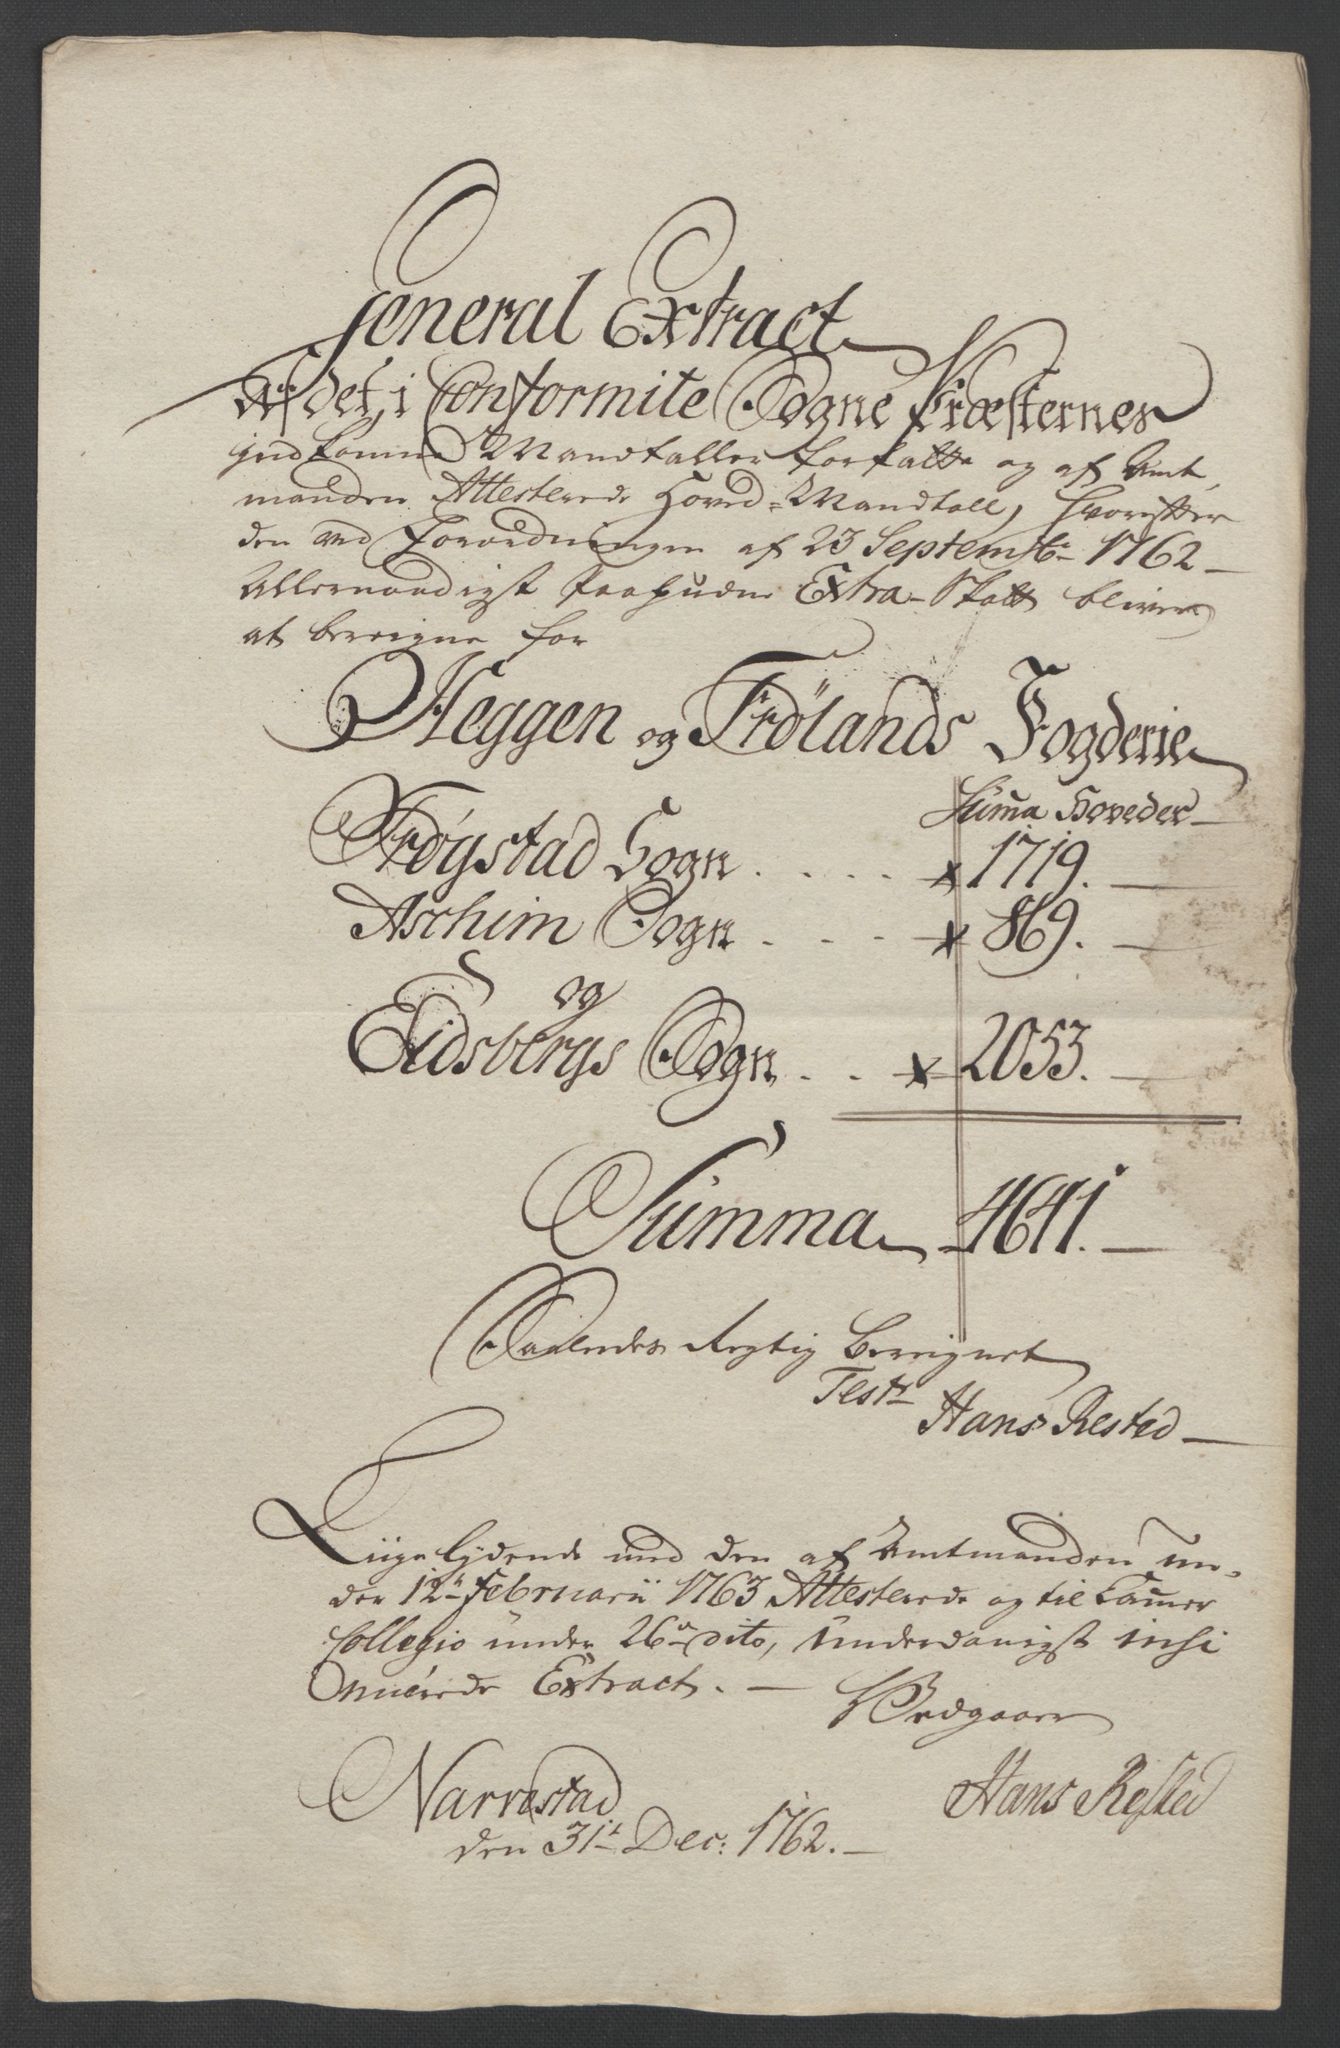 General Extract
Af det, i Conformite Sogne Præsternes
indkomne Mandtaller forfatte og af Amt,
manden Attesterede Hoved-Mandtall, hvorefter
den ved Forordningen af 23 Septembr 1762
Allernaadigst paabudne Extra-Skatt bliver
at bereigne for
Heggen og Frölands Fogderie
Suma Hoveder
Trögstad Sogn . . . . 1719.
Aschim Sogn . . . 869.
og
Eidsbergs Sogn . . . 2053.
Summa 4641.
Saaledes Rigtig Bereignet
Test
Hans Rested
Liige lydende med den af Amtmanden un,
der 12te Februarii 1763 Attesterede og til Camer
Collegio under 26de dito, underdanigst insi
nuerede Extract.
Narrestad
den 31te Dec: 1762.
Hans Rested